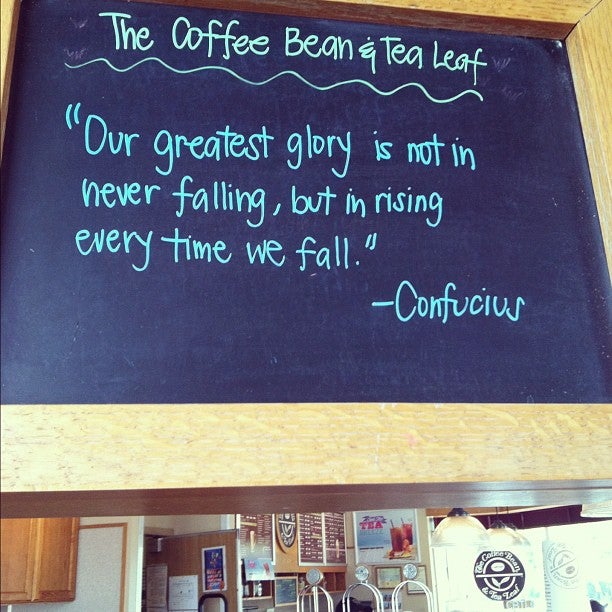 The Coffee Bean & Tea Leaf
"Our greatest glory is not in
never falling, but in rising
every time we fall."
-Confucius
TEA
The Coffee Bean
& Tea Leaf